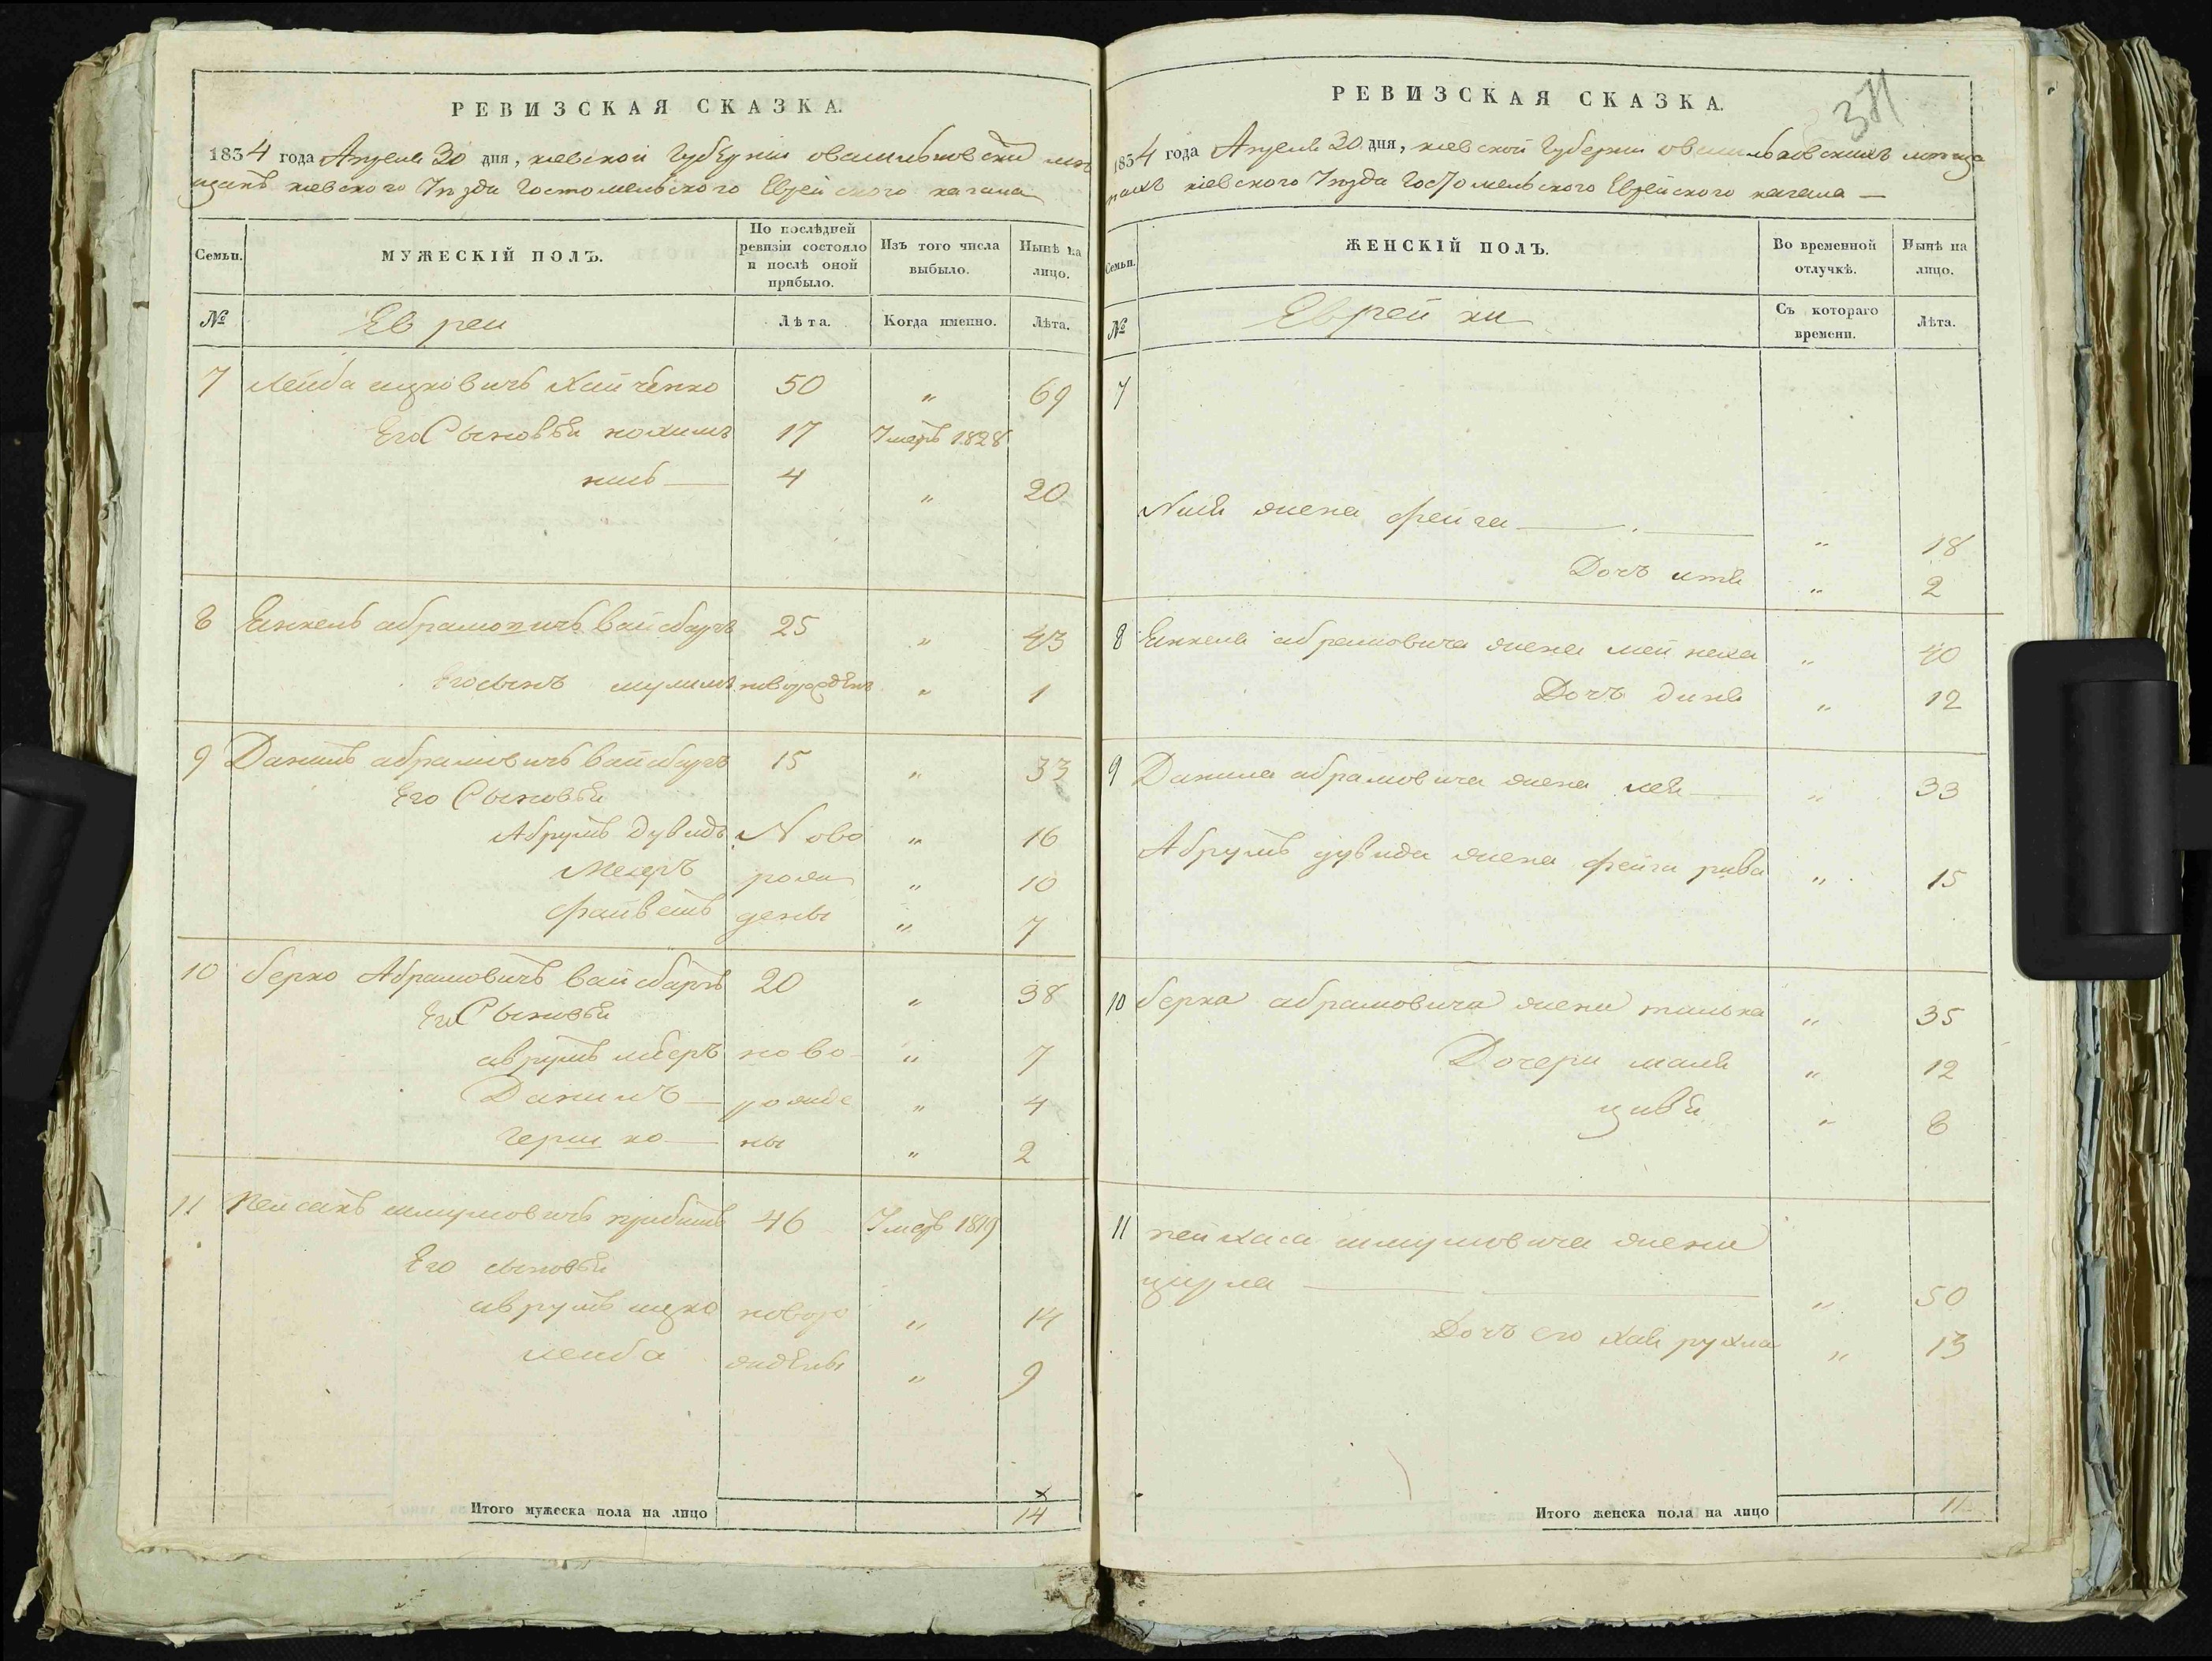 РЕВИЗСКАЯ СКАЗКА.
1834 года Апреля 30 дня, киевской Губернии овасильковских мещ
щанъ киевского Уезда Гостомельского Еврейского кагала
Семьи.
МУЖЕСКІЙ ПОЛЪ.
По послѣдней ревизіи состояло и послѣ оной прибыло.
Изъ того числа выбыло.
Нынѣ на лицо.
№
Евреи
Лѣта.
Когда именно.
Лѣта.
7 Лейба ицковичъ Хайченко 50 " 69
Его Сыновья нохимъ 17 Умеръ 1828
4 " 20
8 Янкель абрамовичъ вайсбургъ 25 " 43
Его сынъ шулимъ новорожденъ " 1
9 Данило абрамовичъ вайсбургъ 15 " 33
Его Сыновья
Абрумъ дувидъ Ново " 16
Мееръ рож " 10
файвешъ дены " 7
10 берко Абрамовичъ вайсбургъ 20 " 38
Его Сыновья
аврумъ мееръ ново " 7
Данилъ рожде " 4
герш ко ны " 2
11 Пейсахъ шмулiовичъ 46 Умеръ 1819
Его сыновья
аврумъ ицко новоро " 14
лейба жденые " 9
Итого мужеска пола на лицо 14
РЕВИЗСКАЯ СКАЗКА.
371
1834 года Апреля 30 дня, киевской Губернии овасильковскихъ мѣща
нахъ киевского Уезда Гостомельского Еврейского кагала
Семьи.
ЖЕНСКІЙ ПОЛЪ.
Во временной отлучкѣ.
Нынѣ на лицо.
№
Еврейки
Съ котораго времени.
Лѣта.
7
жена фейга " 18
Дочъ итя " 2
8 Янкеля абрамовича жена мейнеха " 40
Дочъ диня " 12
9 Данила абрамовича жена лея " 33
Абрумъ дувида жена фейга рива " 15
10 берка абрамовича жена талька " 35
Дочери маля " 12
цивя " 8
11 пейхаса шмулiовича жена
цирла " 50
Дочъ его хая рухля " 13
Итого женска пола на лицо 11